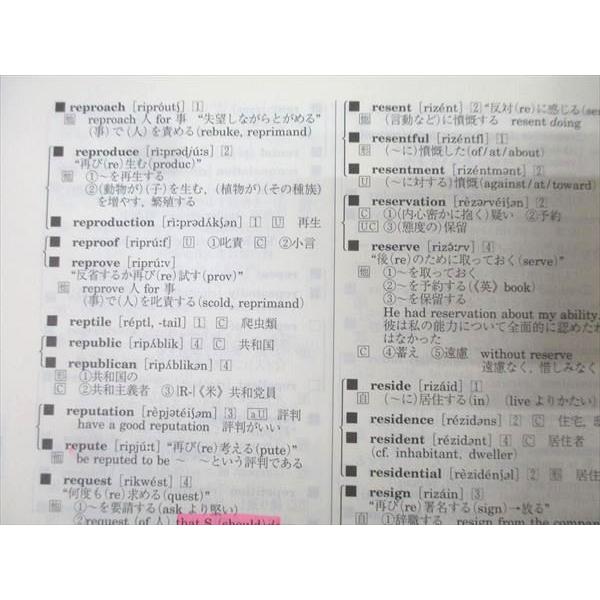 ■ reproach [ripróutʃ] 1
他 reproach 人 for 事 “失望しながらとがめる”
(事)で(人)を責める(rebuke, reprimand)
■ reproduce [rìːprədjúːs] 2
“再び(re)生む(produc)”
他 ①〜を再生する
②(動物が)(子)を生む, (植物が)(その種族)
を増やす, 繁殖する
■ reproduction [rìːprədʌ́kʃən] 1 U 再生
■ reproof [riprúːf] U ①叱責 C ②小言
■ reprove [riprúːv]
“反省するか再び(re)試す(prov)”
他 reprove 人 for 事
(事)で(人)を叱責する(scold, reprimand)
■ reptile [réptl, -tail] 1 C 爬虫類
■ republic [ripʌ́blik] 4 C 共和国
■ republican [ripʌ́blikən]
形 ①共和国の
C ②共和主義者 ③[R-]《米》共和党員
■ reputation [rèpjətéiʃəm] 3 aU 評判
have a good reputation 評判がいい
■ repute [ripjúːt] “再び(re)考える(pute)”
be reputed to be 〜 〜という評判である
■ request [rikwést] 4
“何度も(re)求める(quest)”
他 ①〜を要請する(ask より堅い)
②request (of 人) that S (should) d
■ resent [rizént] 2 “反対(re)に感じる(se
他 (言動など)に憤慨する resent doing
■ resentful [rizéntfl] 1
形 (〜に)憤慨した(of/at/about)
■ resentment [rizéntmənt] 2
U (〜に対する)憤慨(against/at/toward)
■ reservation [rèzərvéiʃən] 2
C ①(内心密かに抱く)疑い ②予約
UC ③(態度の)保留
■ reserve [rizə́ːrv] 4
“後(re)のために取っておく(serve)”
他 ①〜を取っておく
②〜を予約する(《英》book)
③〜を保留する
He had reservation about my ability.
彼は私の能力について全面的に認めたわ
はなかった
C ④蓄え ⑤遠慮 without reserve
遠慮なく, 惜しみなく
■ reside [rizáid] 1
自 (〜に)居住する(in) (live よりかたい)
■ residence [rézidəns] 2 C 住宅,
■ resident [rézidənt] 4 C 居住者
(cf. inhabitant, dweller)
■ residential [rèzidénʃəl] 2 形 居住
■ resign [rizáin] 3
“再び(re)署名する(sign)→放る”
自 ①辞職する resign from the compan